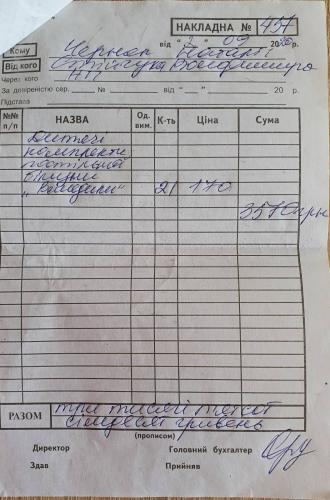 НАКЛАДНА № 457
від " 2 " 09 2020 р.
Кому Черняк Наталі
Від кого Володимира
Через кого НП
За довіреністю сер. № від " " 20 р.
Підстава
№№ п/п НАЗВА Од. вим. К-ть Ціна Сума
Дитячі
комплекти
постільної
білизни
21 170
3570 грн
РАЗОМ три тисячі п'ятсот
сімдесят гривень
(прописом)
Директор Головний бухгалтер
Здав Прийняв